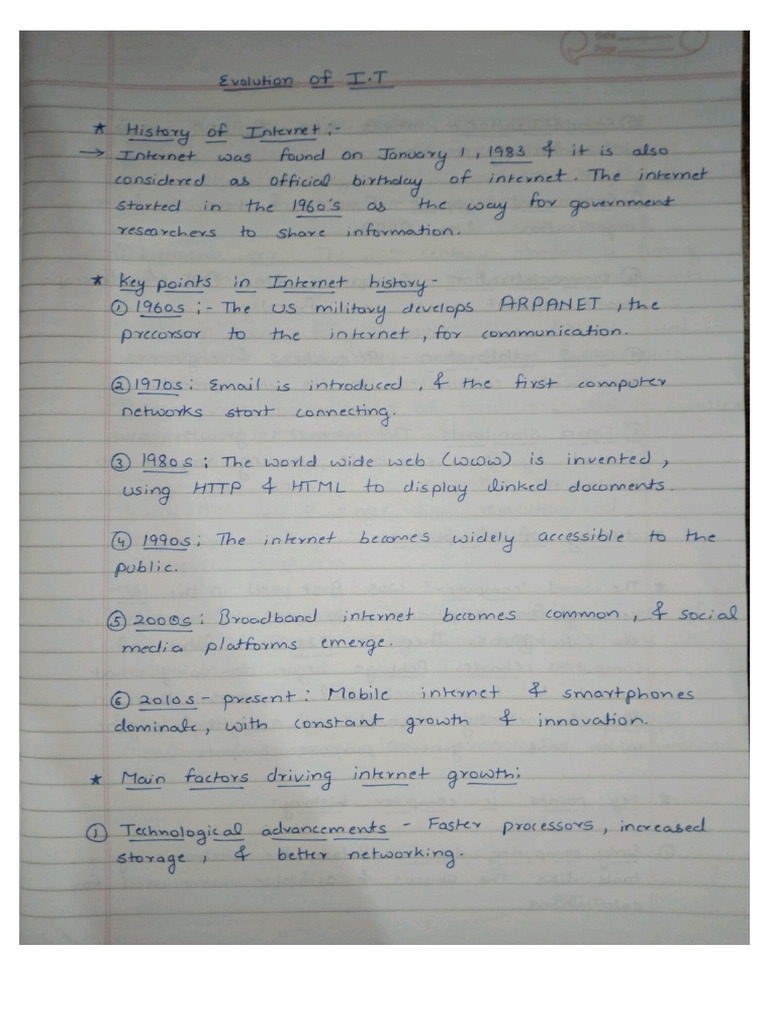 Evolution of I.T
* History of Internet :-
→ Internet was found on January 1, 1983 & it is also
considered as official birthday of internet. The internet
started in the 1960's as the way for government
researchers to share information.
* Key points in Internet history -
① 1960s :- The US military develops ARPANET, the
precursor to the internet, for communication.
② 1970s : Email is introduced, & the first computer
networks start connecting.
③ 1980s : The world wide web (WWW) is invented,
using HTTP & HTML to display linked documents.
④ 1990s : The internet becomes widely accessible to the
public.
⑤ 2000s : Broadband internet becomes common, & social
media platforms emerge.
⑥ 2010s - present : Mobile internet & smartphones
dominate, with constant growth & innovation.
* Main factors driving internet growth :
① Technological advancements - Faster processors, increased
storage, & better networking.